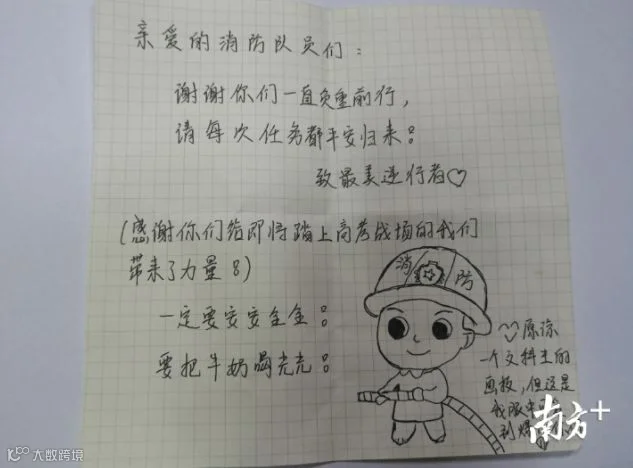 亲爱的消防队员们：
谢谢你们一直负重前行，
请每次任务都平安归来！
致最美逆行者♡
(感谢你们给即将踏上高考战场的我们
带来了力量！)
一定要安安全全！
要把牛奶喝光光！
消 防
原谅
一个文科生的
画技，但这是
我眼中
南方+
大数跨境